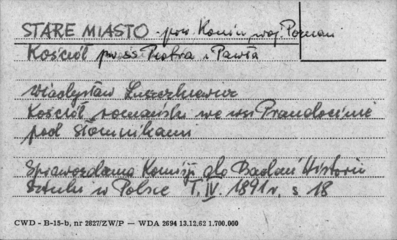 STARE MIASTO - pow. Konin, woj. Poznań
Kościół pw ss Piotra i Pawła
Władysław Łuszczkiewicz
Kościół romański we wsi Prandocinie
pod Słomnikami
Sprawozdania Komisji do Badań Historii
Sztuki w Polsce T. IV. 1891 r. s 18
CWD - B-15-b, nr 2827/ZW/P — WDA 2694 13.12.62 1.700.000